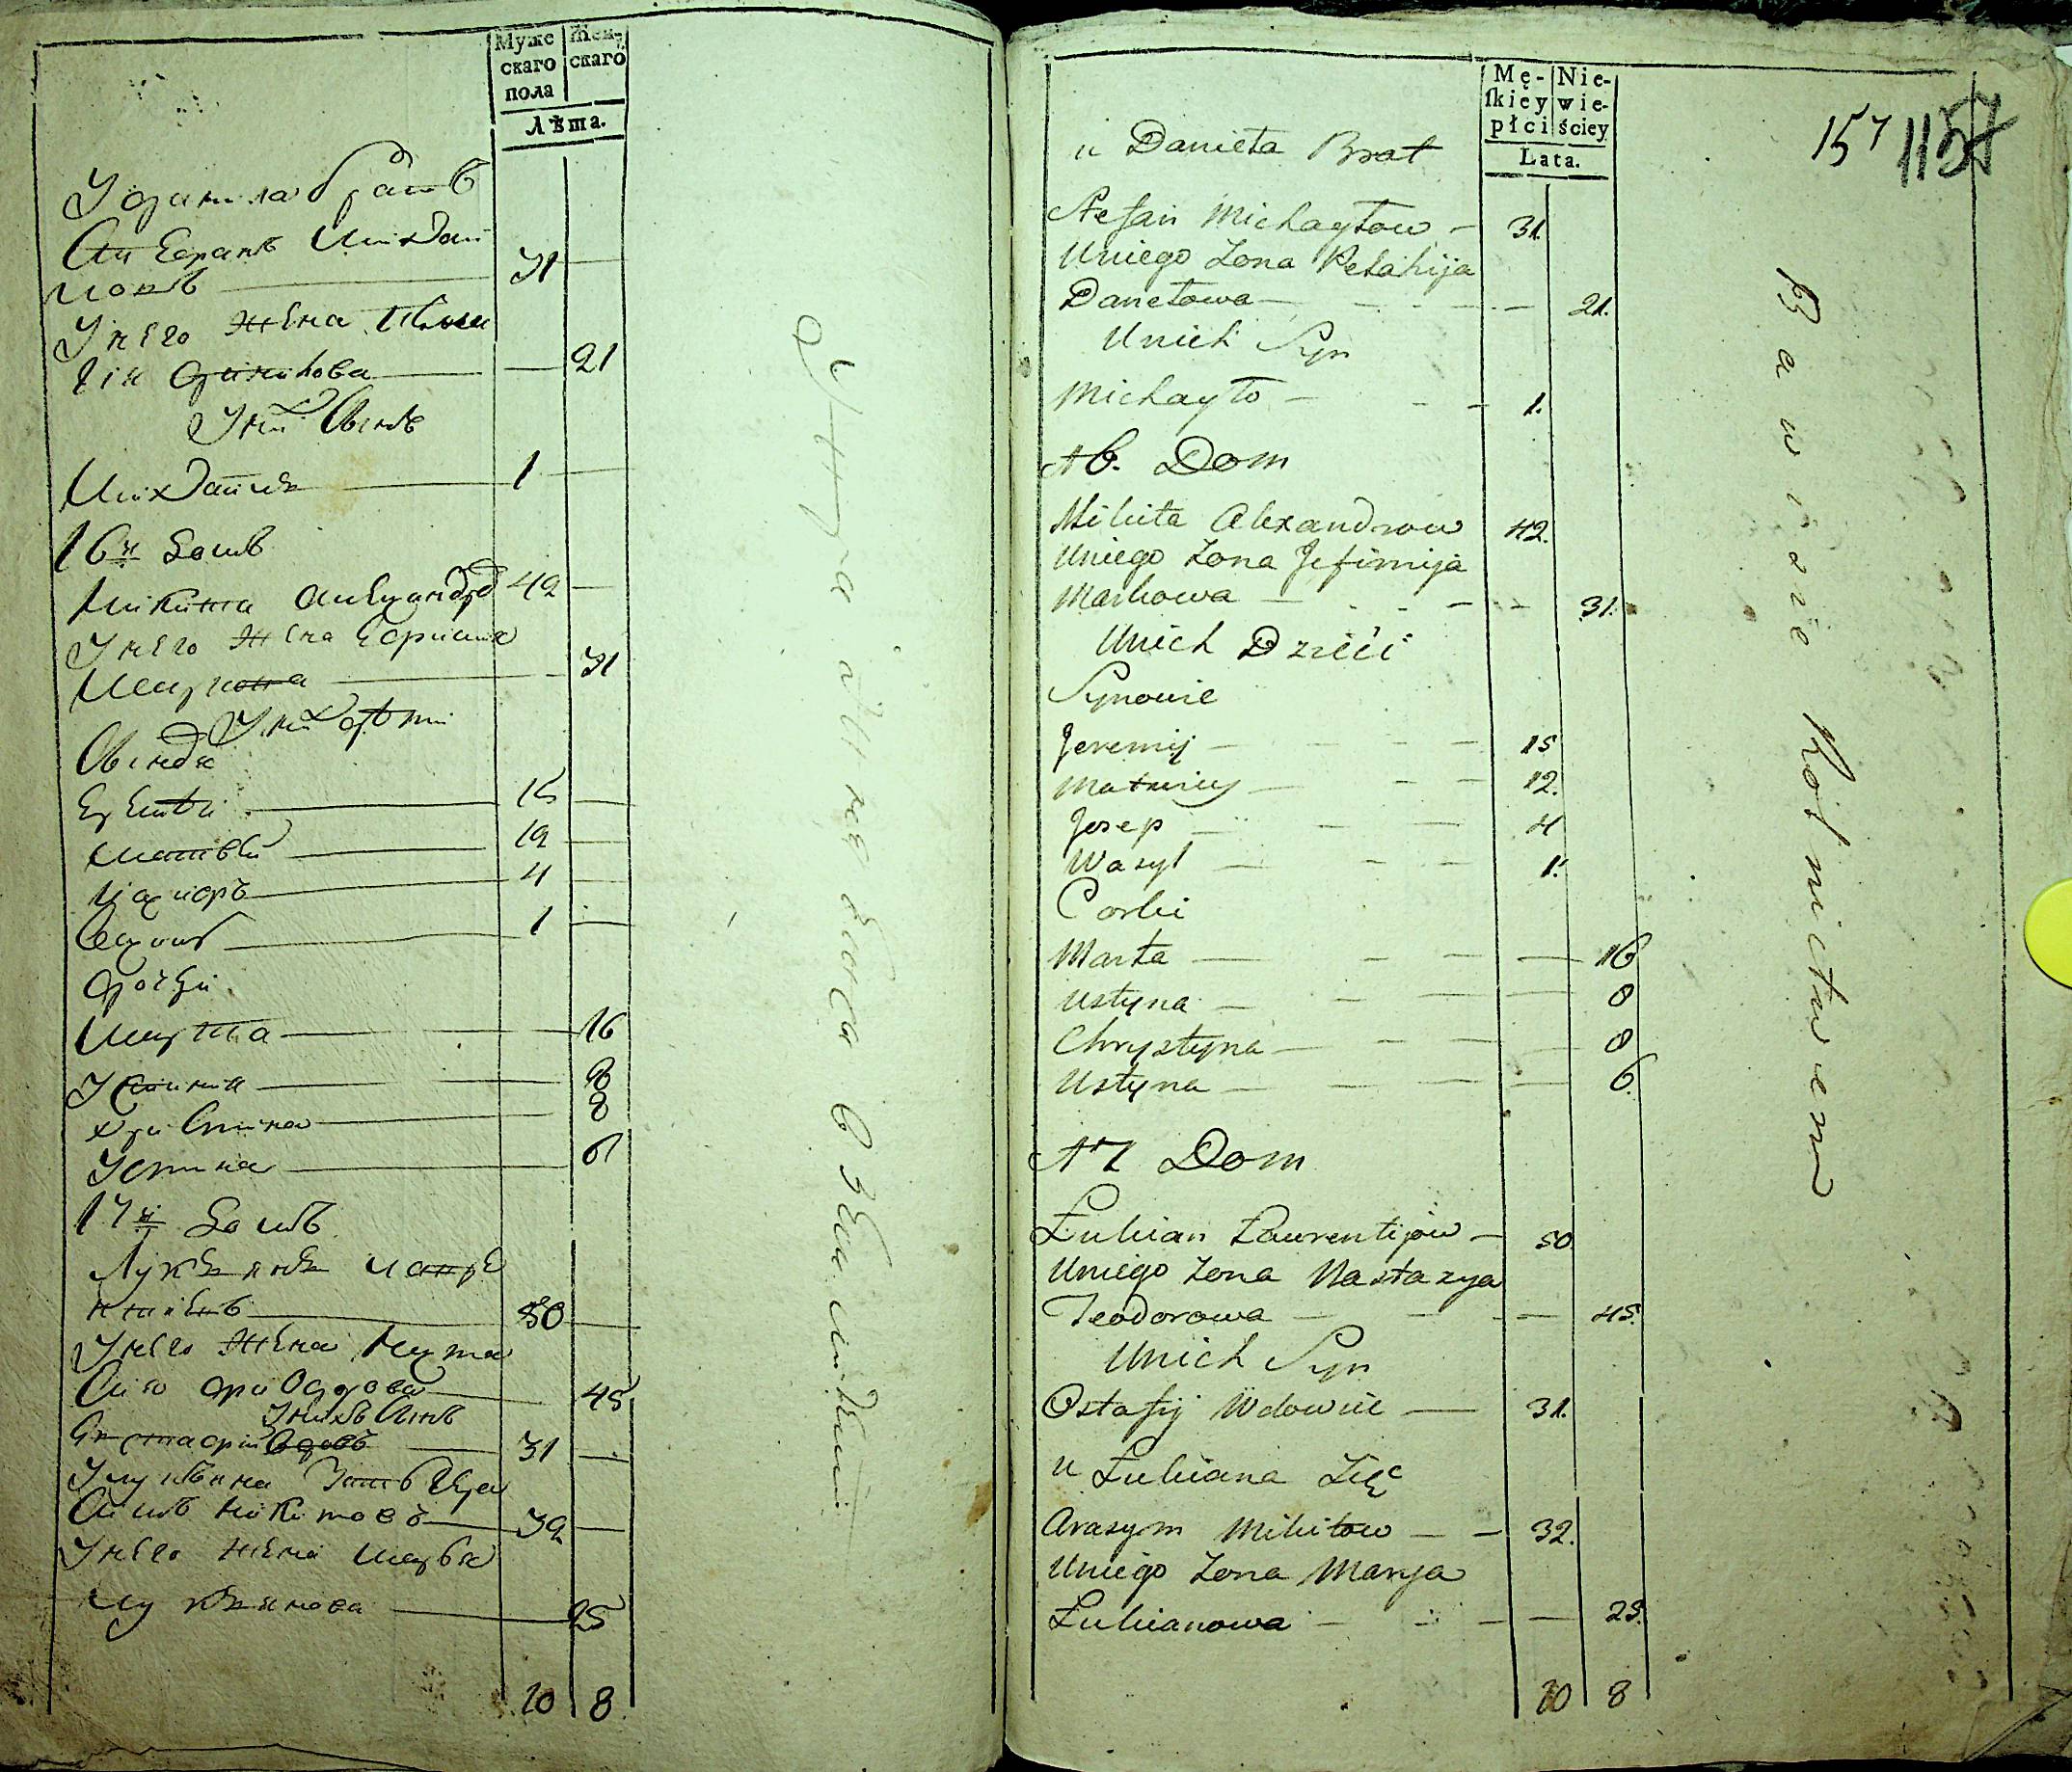 Муже
скаго
пола
Жен-
скаго
Лѣта.
У Данила братъ
Стефанъ Михай
ловъ 31
У него жена Пела
гія Данилова 21
У них сынъ
Михайла 1
16й Домъ
Микита Александро 42
У него жена Ефимия
Маркова 31
У них дѣти
Сыновя
Еремѣй 15
Матвѣй 12
4
1
дочери
Марта 16
Устиния 8
Христина 8
Устина 6
17й Домъ
Лукьянъ Лавре
нтиевъ 50
У него жена Наста
сия Феодорова 45
У нихъ сынъ
Евстафий вдовъ 31
У Лукьяна зять Гера
симъ Никитовъ 32
У него жена Марья
Лукьянова 25
10 8
Mę-
skiey
płci
Nie-
wie-
ściey
Lata.
157 1157
u Daniela Brat
Stefan Michayłow 31.
Uniego Zona Pelahija
Daniłowa 21.
Unich Syn
Michayło 1.
16. Dom
Mikita Alexandrow 42.
Uniego Zona Jefimija
Markowa 31.
Unich Dzieci
Synowie
Jeremij 15
Matwiey 12.
Josep 4
Wasyl 1.
Corki
Marta 16
Ustyna 8
Chrystyna 8
Ustyna 6.
17 Dom
Łukian Ławrentijow 50
Uniego Zona Nastazya
Teodorowa 45.
Unich Syn
Ostafij Wdowiec 31.
u Łukiana Zięć
Arasym Mikitow 32.
Uniego Zona Marya
Łukianowa 25.
10 8
Bawi sie Rolnictwem